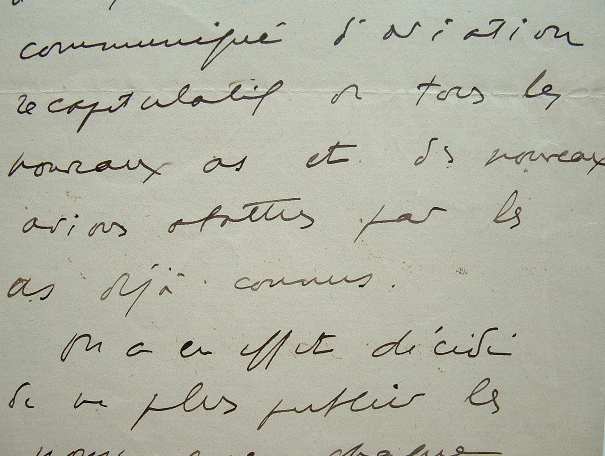 communiqué d'aviation
récapitulatif de tous les
nouveaux as et des nouveaux
avions abattus par les
as déjà connus.
On a en effet décidé
de ne plus publier les
noms que chaque